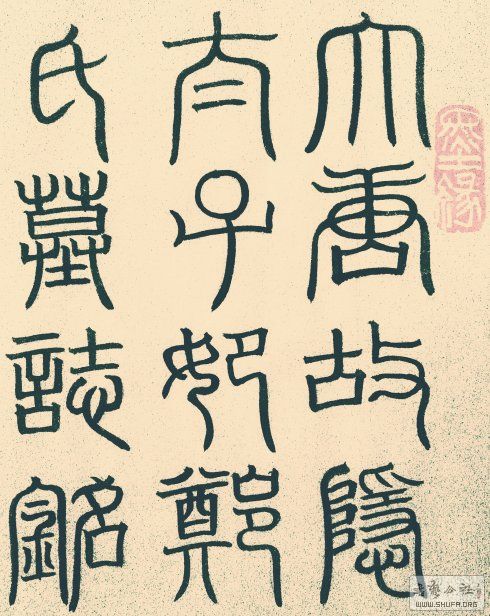 大唐故隱
太子妃鄭
氏墓誌銘
WWW.SHUFA.ORG